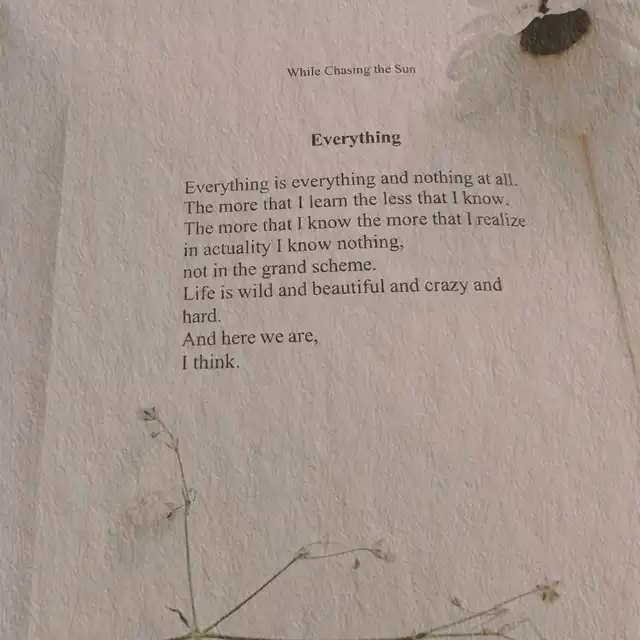 While Chasing the Sun
Everything
Everything is everything and nothing at all.
The more that I learn the less that I know.
The more that I know the more that I realize
in actuality I know nothing,
not in the grand scheme.
Life is wild and beautiful and crazy and
hard.
And here we are,
I think.